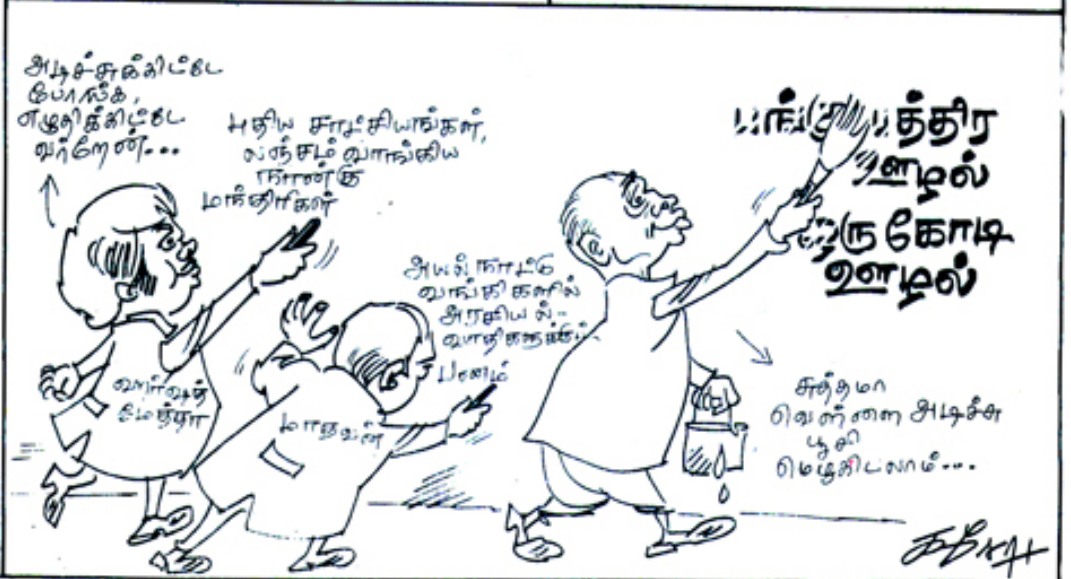 அடிச்சுக்கிட்டே
போங்க,
எழுதிக்கிட்டே
வர்றேன்...
புதிய சாட்சியங்கள்,
லஞ்சம் வாங்கிய
நான்கு
மந்திரிகள்
அயல்நாட்டு
வங்கிகளில்
அரசியல்-
பணம்
பத்திர
ஊழல்
கோடி
ஊழல்
சுத்தமா
வெள்ளை அடிச்சு
பூசி
மெழுகிடலாம்...
ஹர்ஷத்
மேத்தா
மாதவன்